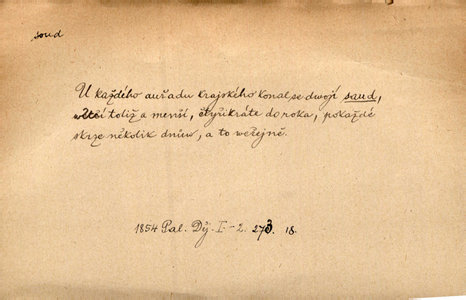 soud
U každého auřadu krajského konal se dwojí saud,
wětší totiž a menší, čtyřikráte do roka, pokaždé
skrze několik dniuw, a to weřejně.
1854 Pal. Děj. I-2. 273 18.